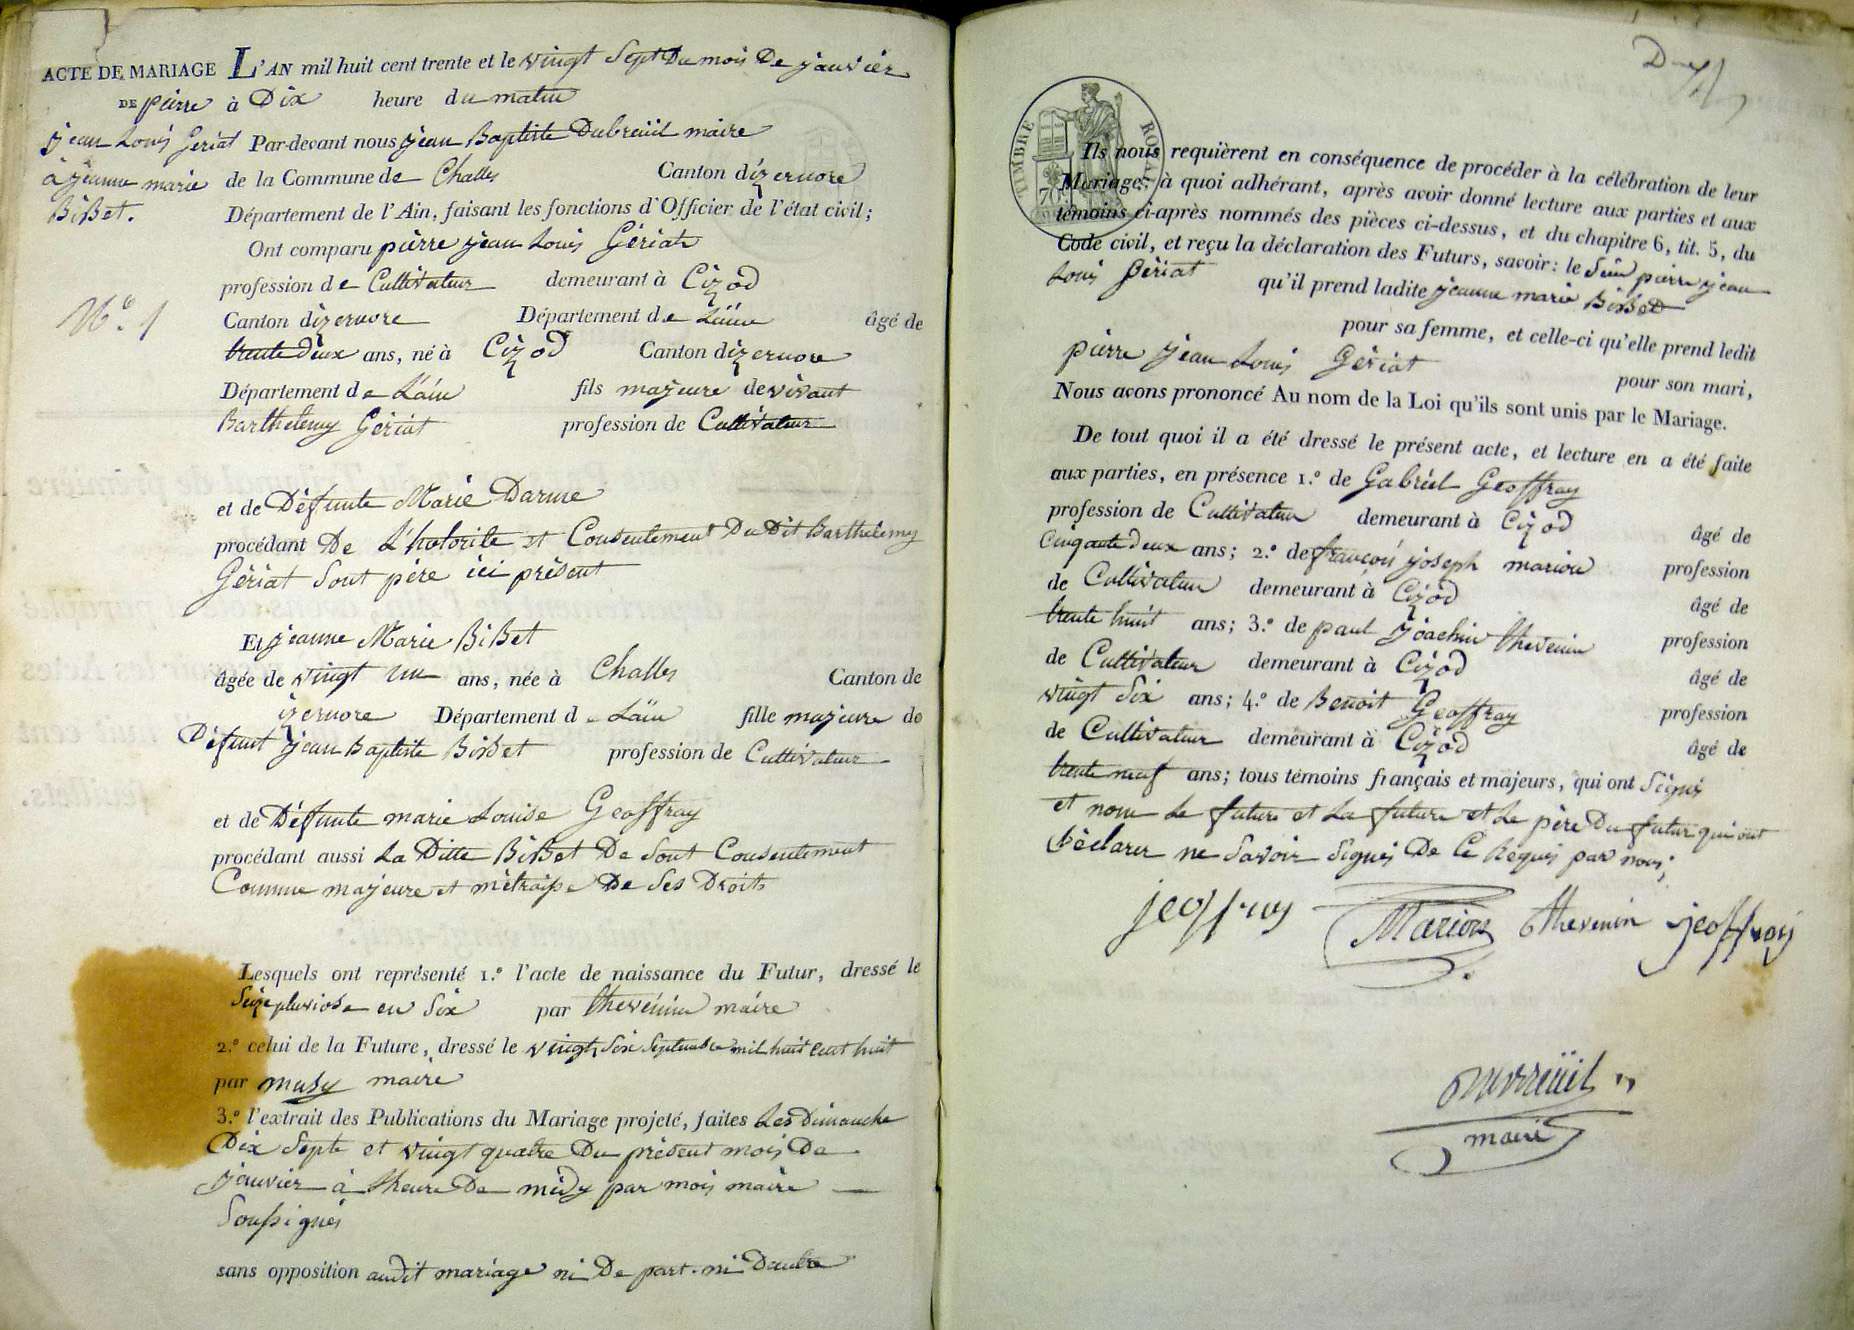 ACTE DE MARIAGE L'AN mil huit cent trente et le vingt Sept Du mois De janvier
DE pierre à Dix heure du matin
jean Louis Gériat Par-devant nous jean Baptiste Dubreüil maire
à jeanne marie de la Commune de Challes Canton dizernore
BiBet. Département de l'Ain, faisant les fonctions d'Officier de l'état civil;
Ont comparu pierre jean Louis Gériat
profession de Cultivateur demeurant à Cizod
N.o 1 Canton dizernore Département de Láin âgé de
trente deux ans, né à Cizod Canton dizernore
Département de Láin fils majeure de vivant
Barthelemy Gériat profession de Cultivateur
et de Défunte Marie Darme
procédant De L'hotorite et Consentement Du Dit Barthelemy
Gériat Sont père ici présent
Et jeanne Marie BiBet
âgée de vingt un ans, née à Challes Canton de
izernore Département de Laïn fille majeure de
Défunt jean Baptiste BiBet profession de Cultivateur
et de Défunte marie Louise Geoffray
procédant aussi La Ditte BiBet De Sont Consentement
Comme majeure et métraisse De Ses Droits
Lesquels ont représenté 1.o l'acte de naissance du Futur, dressé le
Seize pluviose en Six par thevenin maire
2.o celui de la Future, dressé le vingt Six Septembre mil huit cent huit
par musy maire
3.o l'extrait des Publications du Mariage projeté, faites Les Dimanche
Dix Septe et vingt quatre Du présent mois De
janvier à theure De midy par mois maire
Soussignés
sans opposition audit mariage ni De part ni Dautre
TIMBRE ROYAL
70
Ils nous requièrent en conséquence de procéder à la célébration de leur
Mariage; à quoi adhérant, après avoir donné lecture aux parties et aux
témoins ci-après nommés des pièces ci-dessus, et du chapitre 6, tit. 5, du
Code civil, et reçu la déclaration des Futurs, savoir: le Sieur pierre jean
Louis Gériat qu'il prend ladite jeanne marie BiBet
pour sa femme, et celle-ci qu'elle prend ledit
pierre jean Louis Gériat pour son mari,
Nous avons prononcé Au nom de la Loi qu'ils sont unis par le Mariage.
De tout quoi il a été dressé le présent acte, et lecture en a été faite
aux parties, en présence 1.o de Gabriel Geoffray
profession de Cultivateur demeurant à Cizod âgé de
Cinqante deux ans; 2.o de françois joseph marion profession
de Cultivateur demeurant à Cizod âgé de
trente huit ans; 3.o de paul joachin thevenin profession
de Cultivateur demeurant à Cizod âgé de
vingt Six ans; 4.o de Benoit Geoffray profession
de Cultivateur demeurant à Cizod âgé de
trente neuf ans; tous témoins français et majeurs, qui ont Signés
et nom Le future et La future et Le père Du futur qui ont
Déclarer ne Savoir Signés De Ce Requis par nous;
jeoffray Marion thevenin jeoffray
Dubreüil
maire